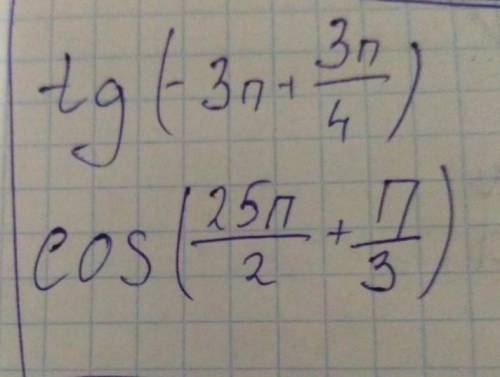 tg(-3π+3π/4)
cos(25π/2+π/3)